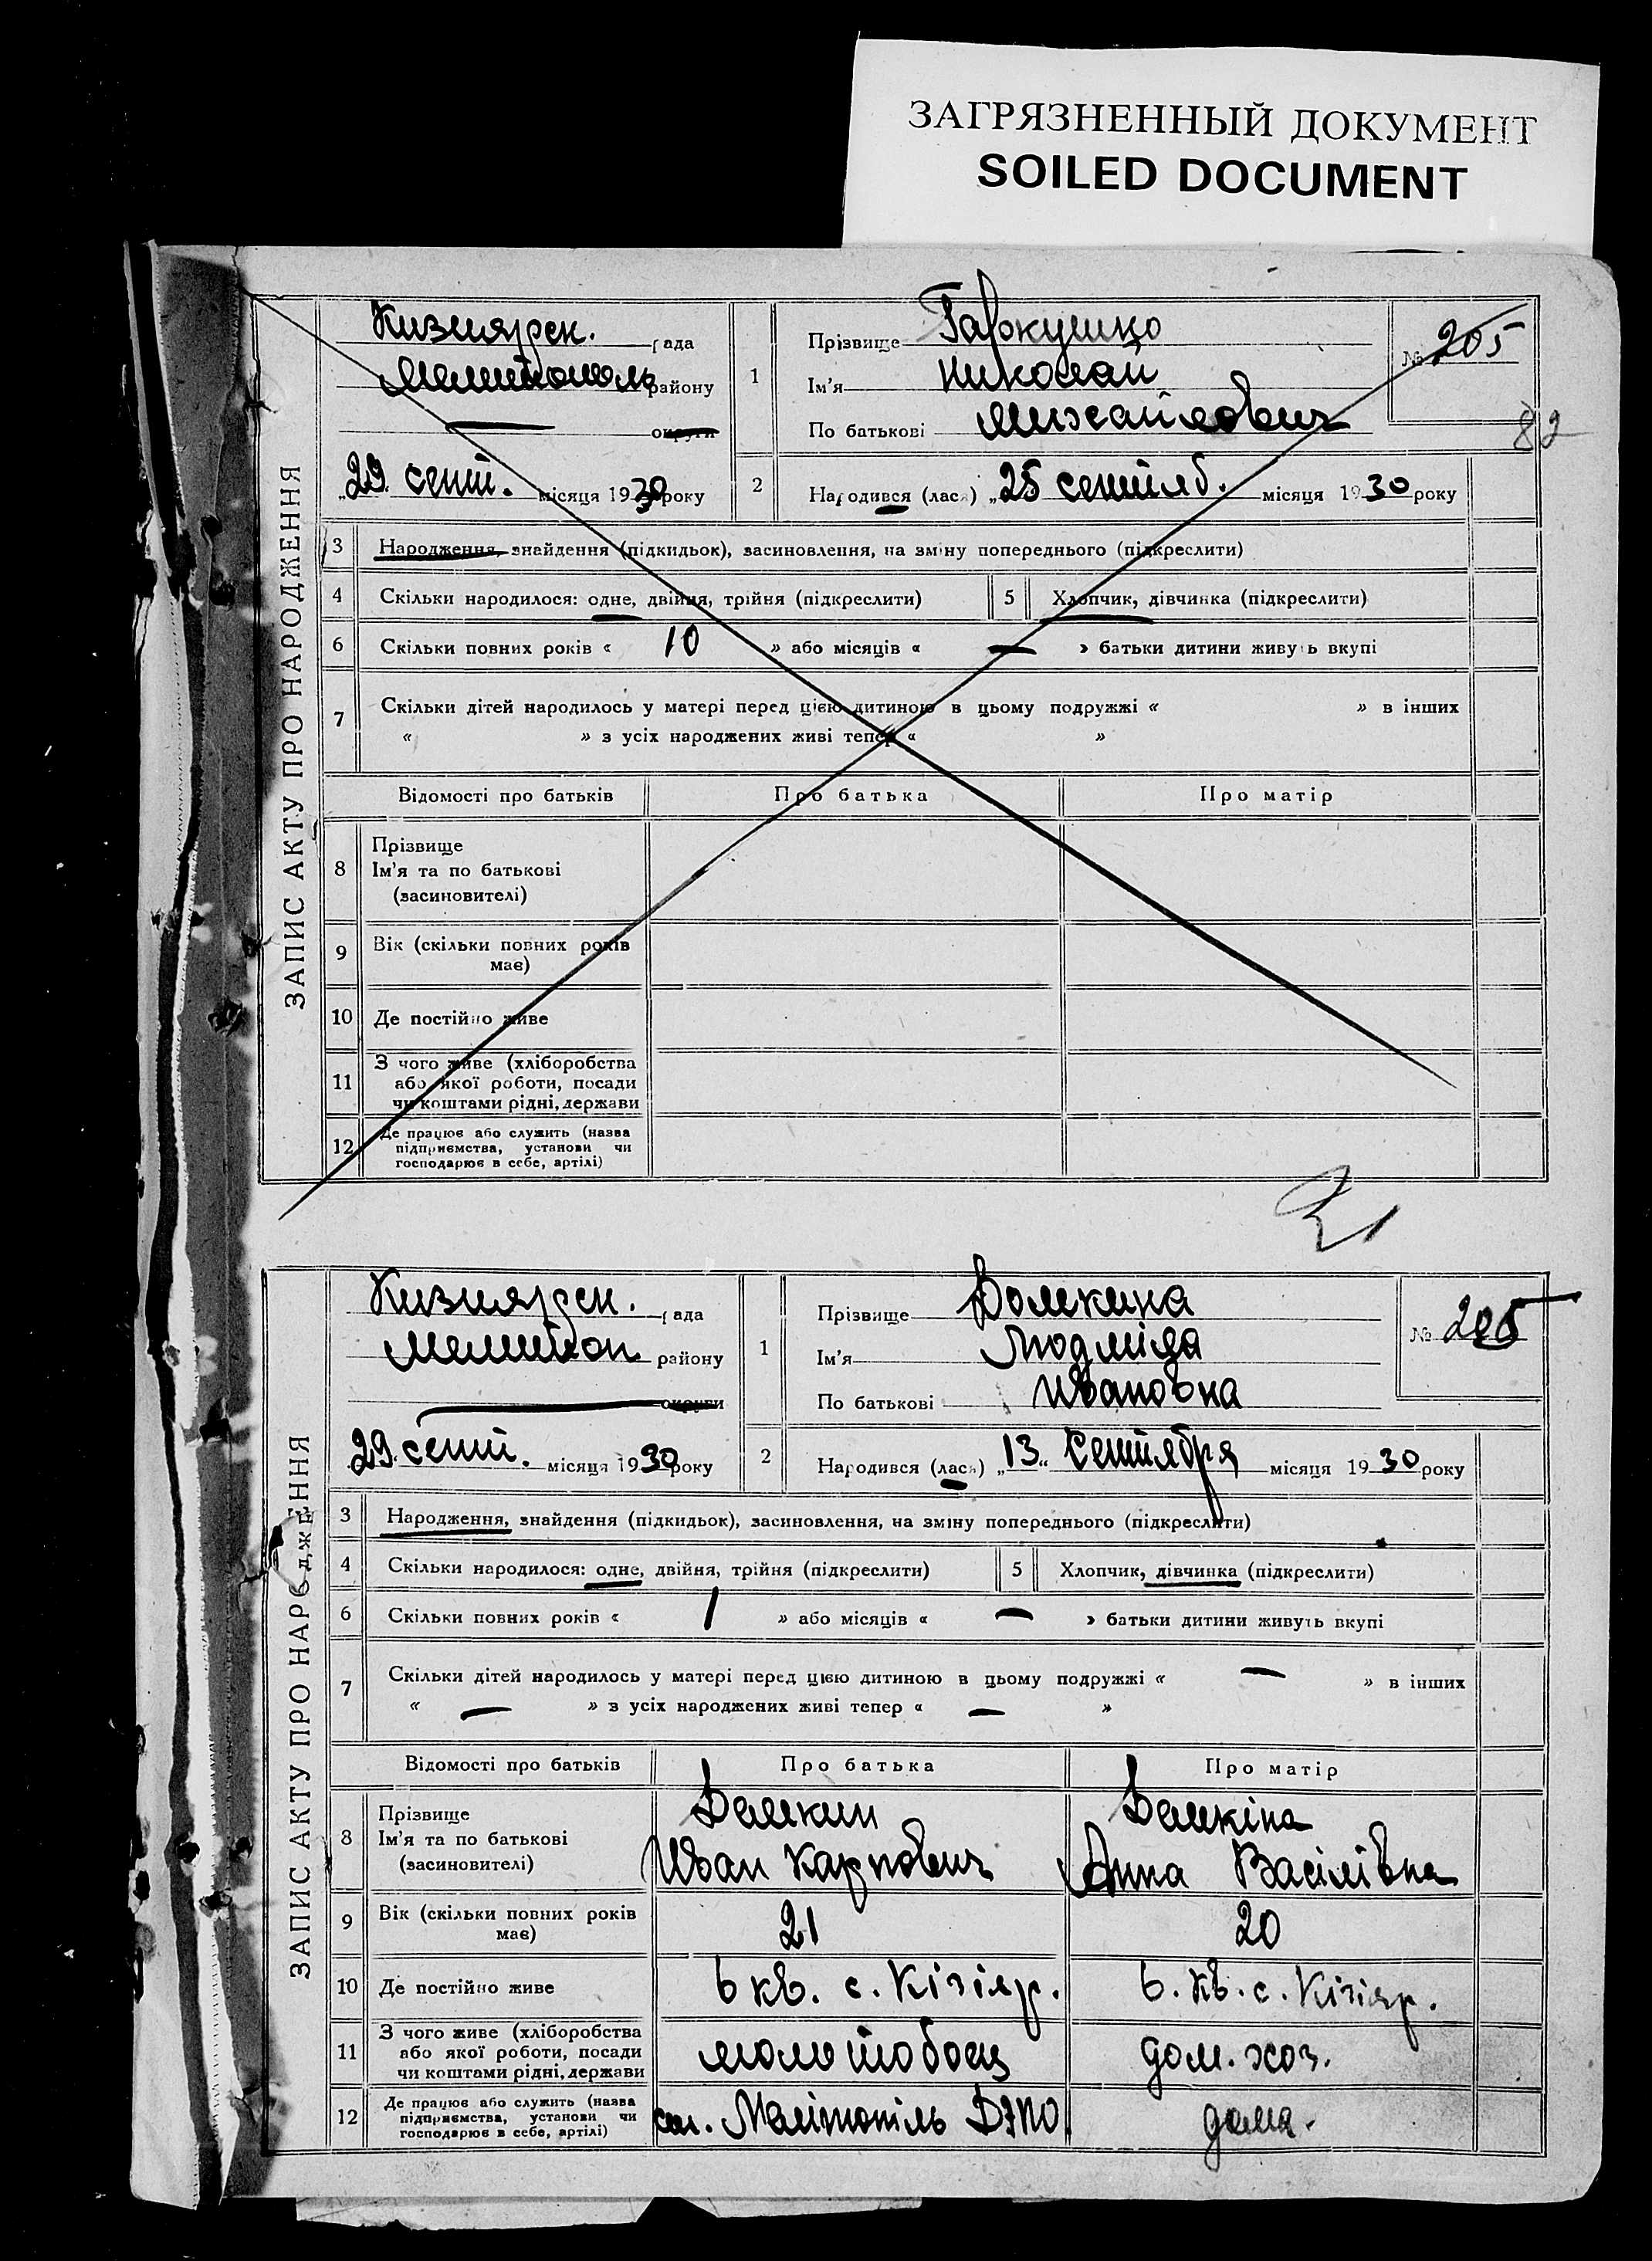 ЗАГРЯЗНЕННЫЙ ДОКУМЕНТ
SOILED DOCUMENT
ЗАПИС АКТУ ПРО НАРОДЖЕННЯ
Кизиярск. рада
Мелитополь району
округи
„29 сент. місяця 1930 року
1
Прізвище Гаркушко
Ім'я Николай
По батькові Михайлович
№ 205
82
2
Народився (лася) „25 сентяб. місяця 1930 року
3 Народження, знайдення (підкидьок), засиновлення, на зміну попереднього (підкреслити)
4 Скільки народилося: одне, двійня, трійня (підкреслити) 5 Хлопчик, дівчинка (підкреслити)
6 Скільки повних років « 10 » або місяців « — » батьки дитини живуть вкупі
7 Скільки дітей народилось у матері перед цією дитиною в цьому подружжі « » в інших
« » з усіх народжених живі тепер « »
Відомості про батьків Про батька Про матір
8 Прізвище
Ім'я та по батькові
(засиновителі)
9 Вік (скільки повних років
має)
10 Де постійно живе
11 З чого живе (хліборобства
або якої роботи, посади
чи коштами рідні, держави
12 Де працює або служить (назва
підприємства, установи чи
господарює в себе, артілі)
ЗАПИС АКТУ ПРО НАРОДЖЕННЯ
Кизиярск. рада
Мелитоп району
округи
29 сент. місяця 1930 року
1
Прізвище Домкина
Ім'я Людміла
По батькові Ивановна
№ 205
2
Народився (лася) „13„ Сентября місяця 1930 року
3 Народження, знайдення (підкидьок), засиновлення, на зміну попереднього (підкреслити)
4 Скільки народилося: одне, двійня, трійня (підкреслити) 5 Хлопчик, дівчинка (підкреслити)
6 Скільки повних років « 1 » або місяців « — » батьки дитини живуть вкупі
7 Скільки дітей народилось у матері перед цією дитиною в цьому подружжі « — » в інших
« — » з усіх народжених живі тепер « — »
Відомості про батьків Про батька Про матір
8 Прізвище
Ім'я та по батькові
(засиновителі)
Демкин
Иван Карпович
Демкіна
Анна Васілівна
9 Вік (скільки повних років
має)
21 20
10 Де постійно живе 6 кв. с. Кізіяр. 6. кв. с. Кізіяр.
11 З чого живе (хліборобства
або якої роботи, посади
чи коштами рідні, держави
молотобоец дом. хоз.
12 Де працює або служить (назва
підприємства, установи чи
господарює в себе, артілі)
ст. Мелітопіль дома.